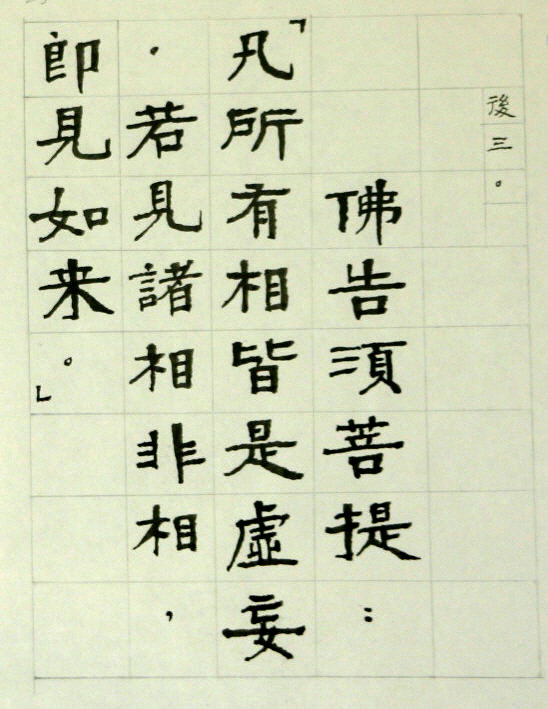 後三。
佛告須菩提：
「凡所有相皆是虛妄
．若見諸相非相，
即見如来。」